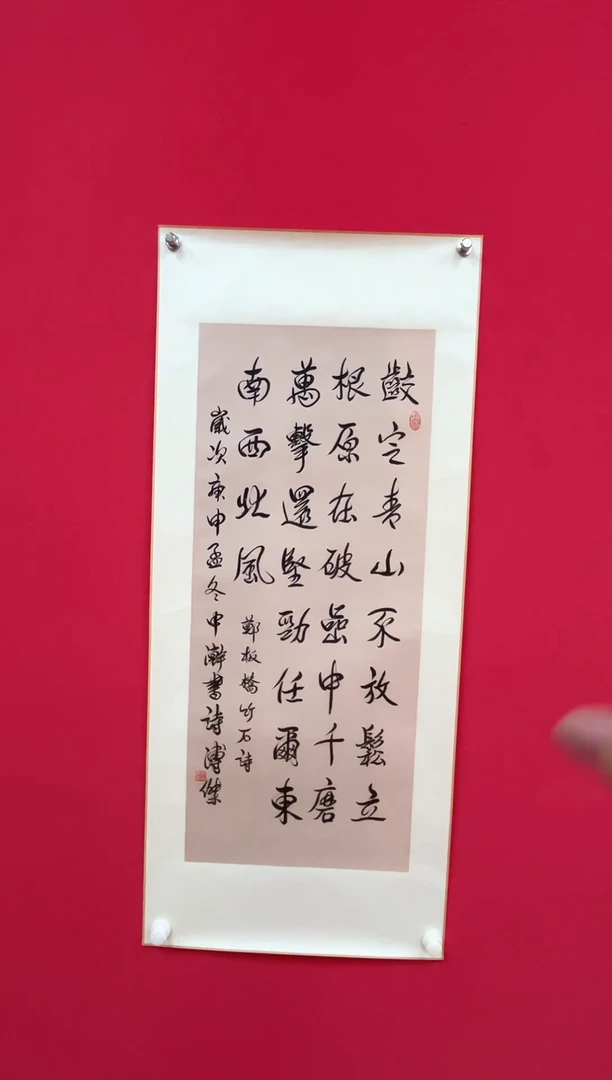 齩定青山不放鬆立
根原在破嵒中千磨
萬擊還堅勁任爾東
南西北風
鄭板橋竹石詩
歲次庚申孟冬中澣書詩溥傑